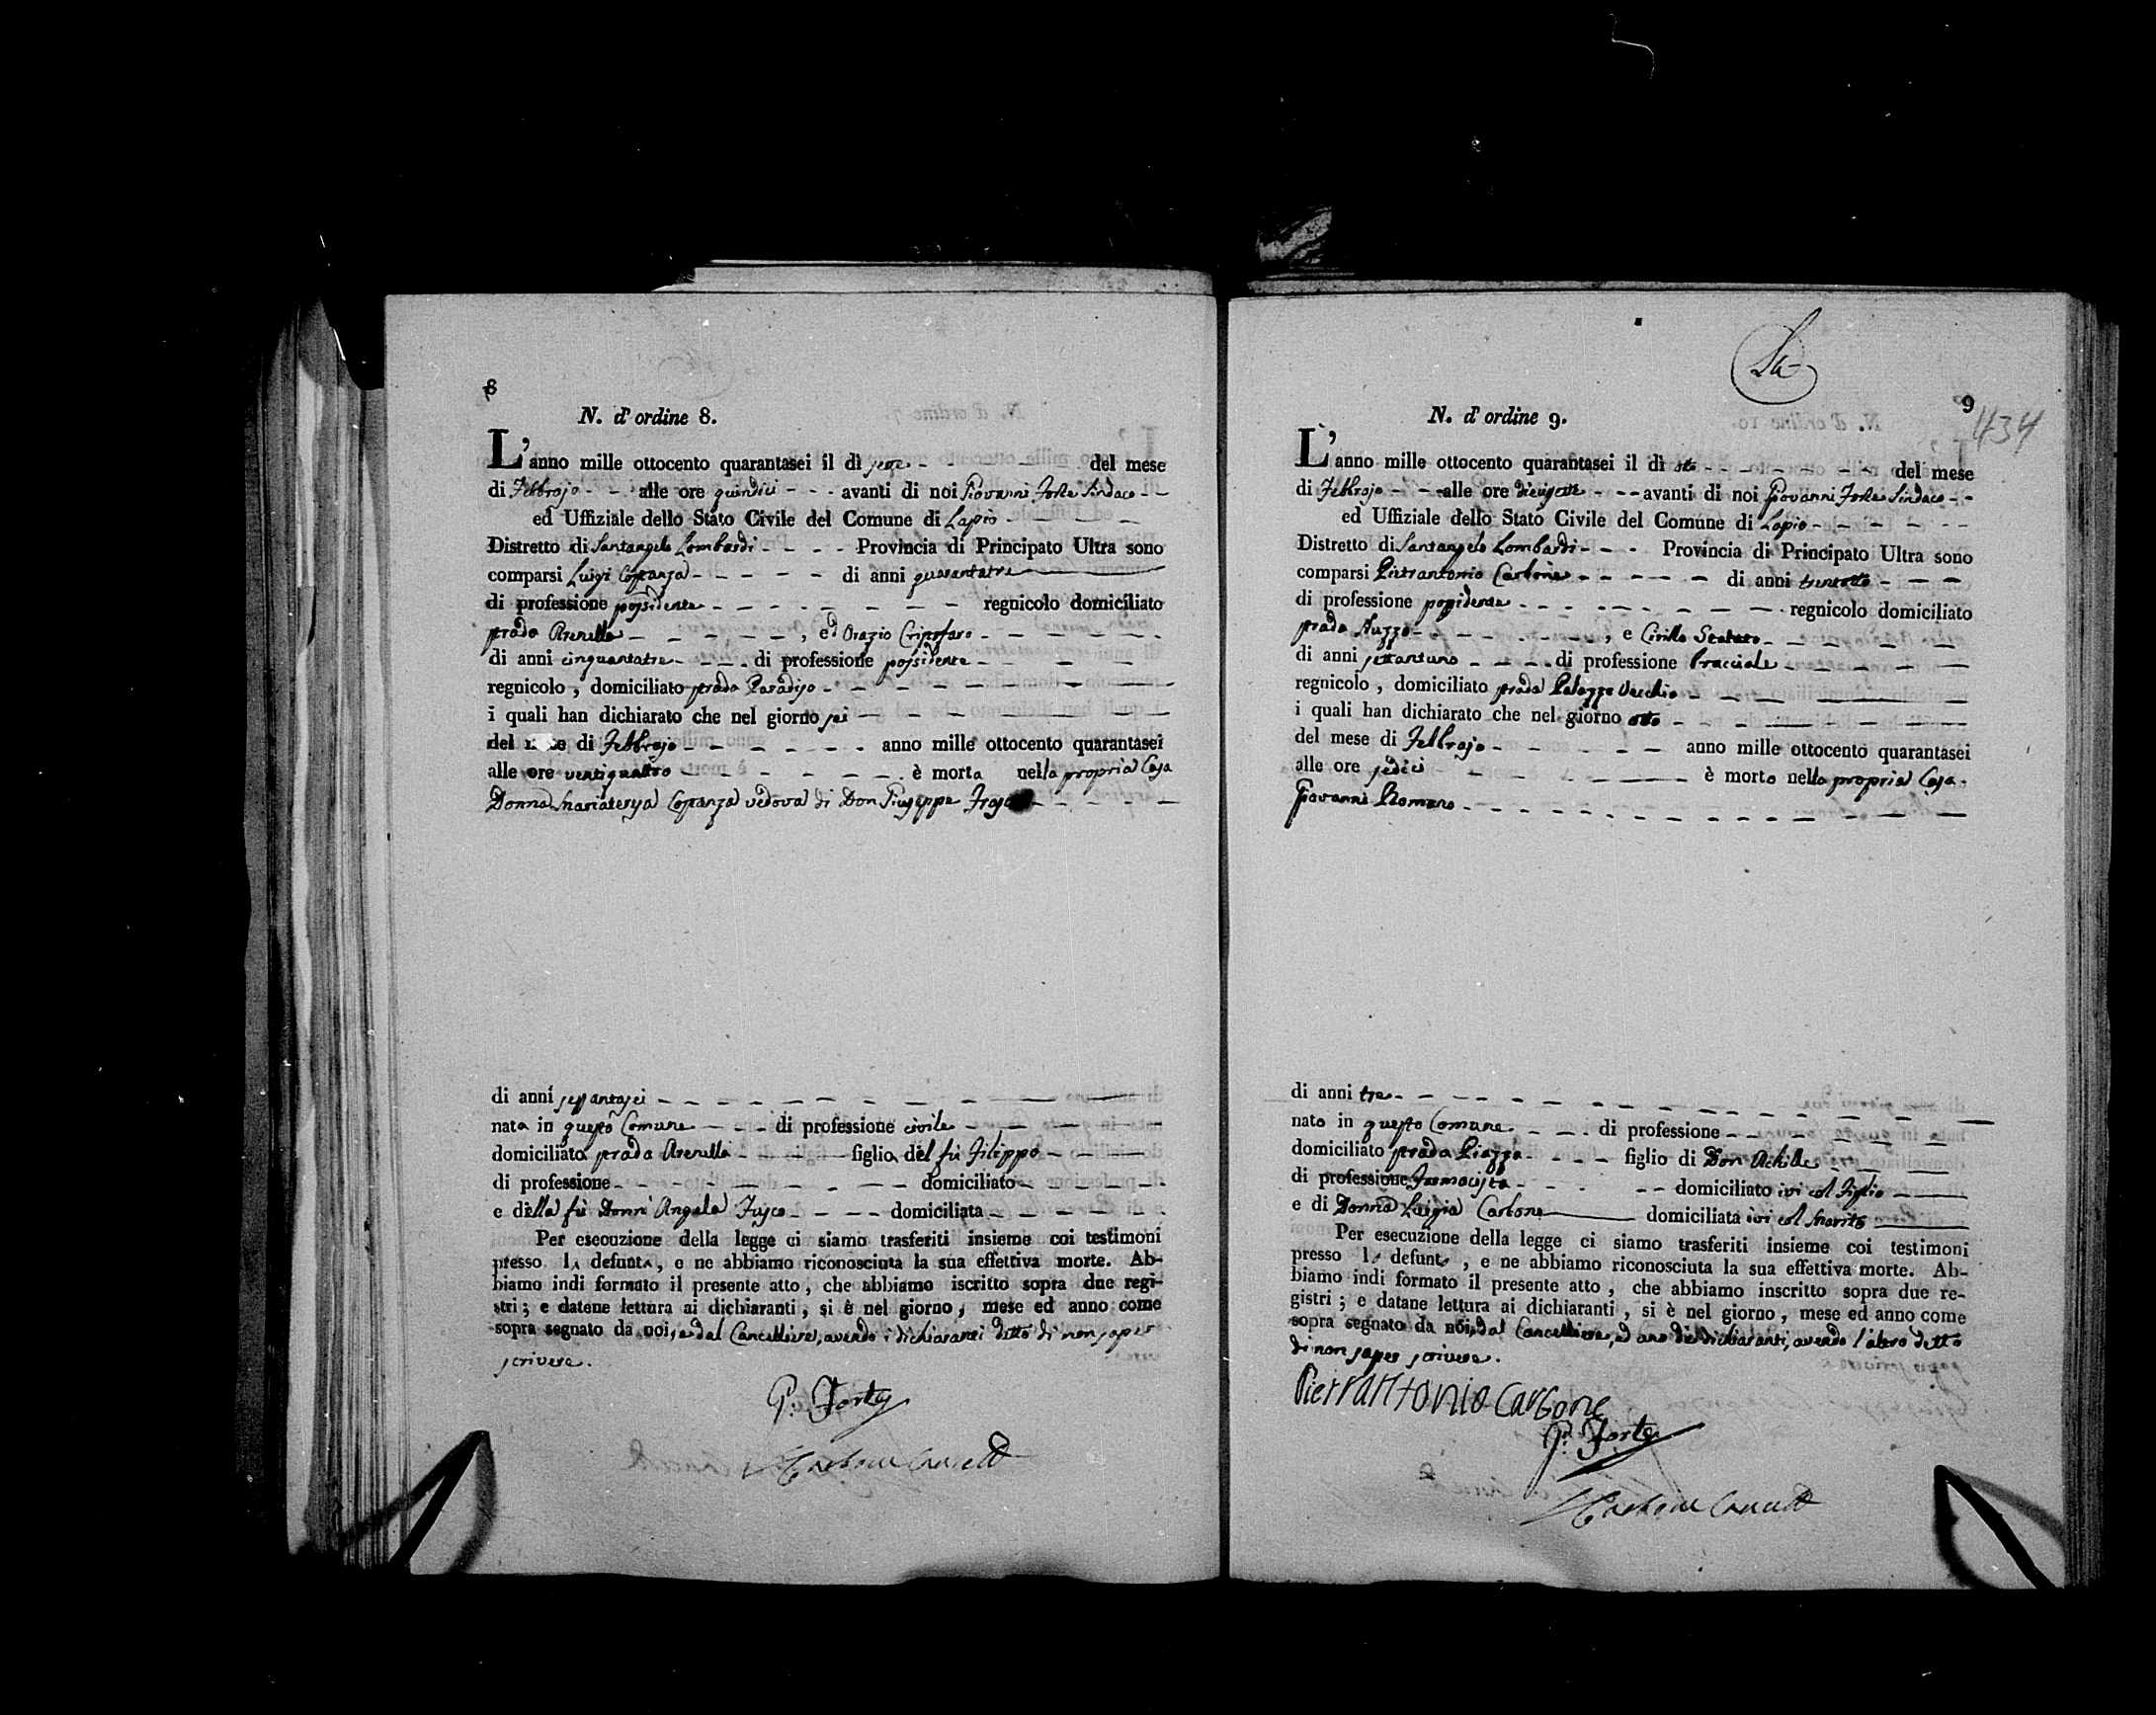 8
N. d'ordine 8.
L'anno mille ottocento quarantasei il dì sette del mese
di Febbrajo alle ore quindici avanti di noi Giovanni Forte Sindaco
ed Uffiziale dello Stato Civile del Comune di Lapio
Distretto di Santangelo Lombardi Provincia di Principato Ultra sono
comparsi Luigi Costanza di anni quarantatre
di professione possidente regnicolo domiciliato
strada Arenella, ed Orazio
di anni cinquantatre di professione possidente
regnicolo, domiciliato strada Paradiso
i quali han dichiarato che nel giorno sei
del di Febbrajo anno mille ottocento quarantasei
alle ore ventiquattro è morta nella propria Casa
Donna Mariateresa Costanza vedova di Don Giuseppe
di anni
nata in questo Comune di professione civile
domiciliata strada Arenella figlia del fù Filippo
di professione domiciliato
e della fù Donn'Angela Fusco domiciliata
Per esecuzione della legge ci siamo trasferiti insieme coi testimoni
presso la defunta, e ne abbiamo riconosciuta la sua effettiva morte. Ab-
biamo indi formato il presente atto, che abbiamo iscritto sopra due regi-
stri; e datene lettura ai dichiaranti, si è nel giorno, mese ed anno come
sopra segnato da noi, e dal Cancelliere, avendo i dichiaranti detto di non saper
scrivere.
G. Forte
Carbone Cancell
9
434
N. d'ordine 9.
L'anno mille ottocento quarantasei il dì otto del mese
di Febbrajo alle ore diecisette avanti di noi Giovanni Forte Sindaco
ed Uffiziale dello Stato Civile del Comune di Lapio
Distretto di Santangelo Lombardi Provincia di Principato Ultra sono
comparsi Pietrantonio Carbone di anni trentotto
di professione possidente regnicolo domiciliato
strada, e Cirillo
di anni settantuno di professione bracciale
regnicolo, domiciliato strada Palazzo Vecchio
i quali han dichiarato che nel giorno otto
del mese di Febbrajo anno mille ottocento quarantasei
alle ore sedici è morto nella propria Casa
Giovanni Romano
di anni tre
nato in questo Comune di professione
domiciliato strada Piazza figlio di Don Achille
di professione Farmacista domiciliato ivi col Figlio
e di Donna Luigia Carbone domiciliata ivi col Marito
Per esecuzione della legge ci siamo trasferiti insieme coi testimoni
presso lo defunto, e ne abbiamo riconosciuta la sua effettiva morte. Ab-
biamo indi formato il presente atto, che abbiamo inscritto sopra due re-
gistri; e datane lettura ai dichiaranti, si è nel giorno, mese ed anno come
sopra segnato da noi, dal Cancelliere, ed uno de' dichiaranti, avendo l'altro detto
di non saper scrivere.
Pietrantonio Carbone
G. Forte
Carbone Cancell